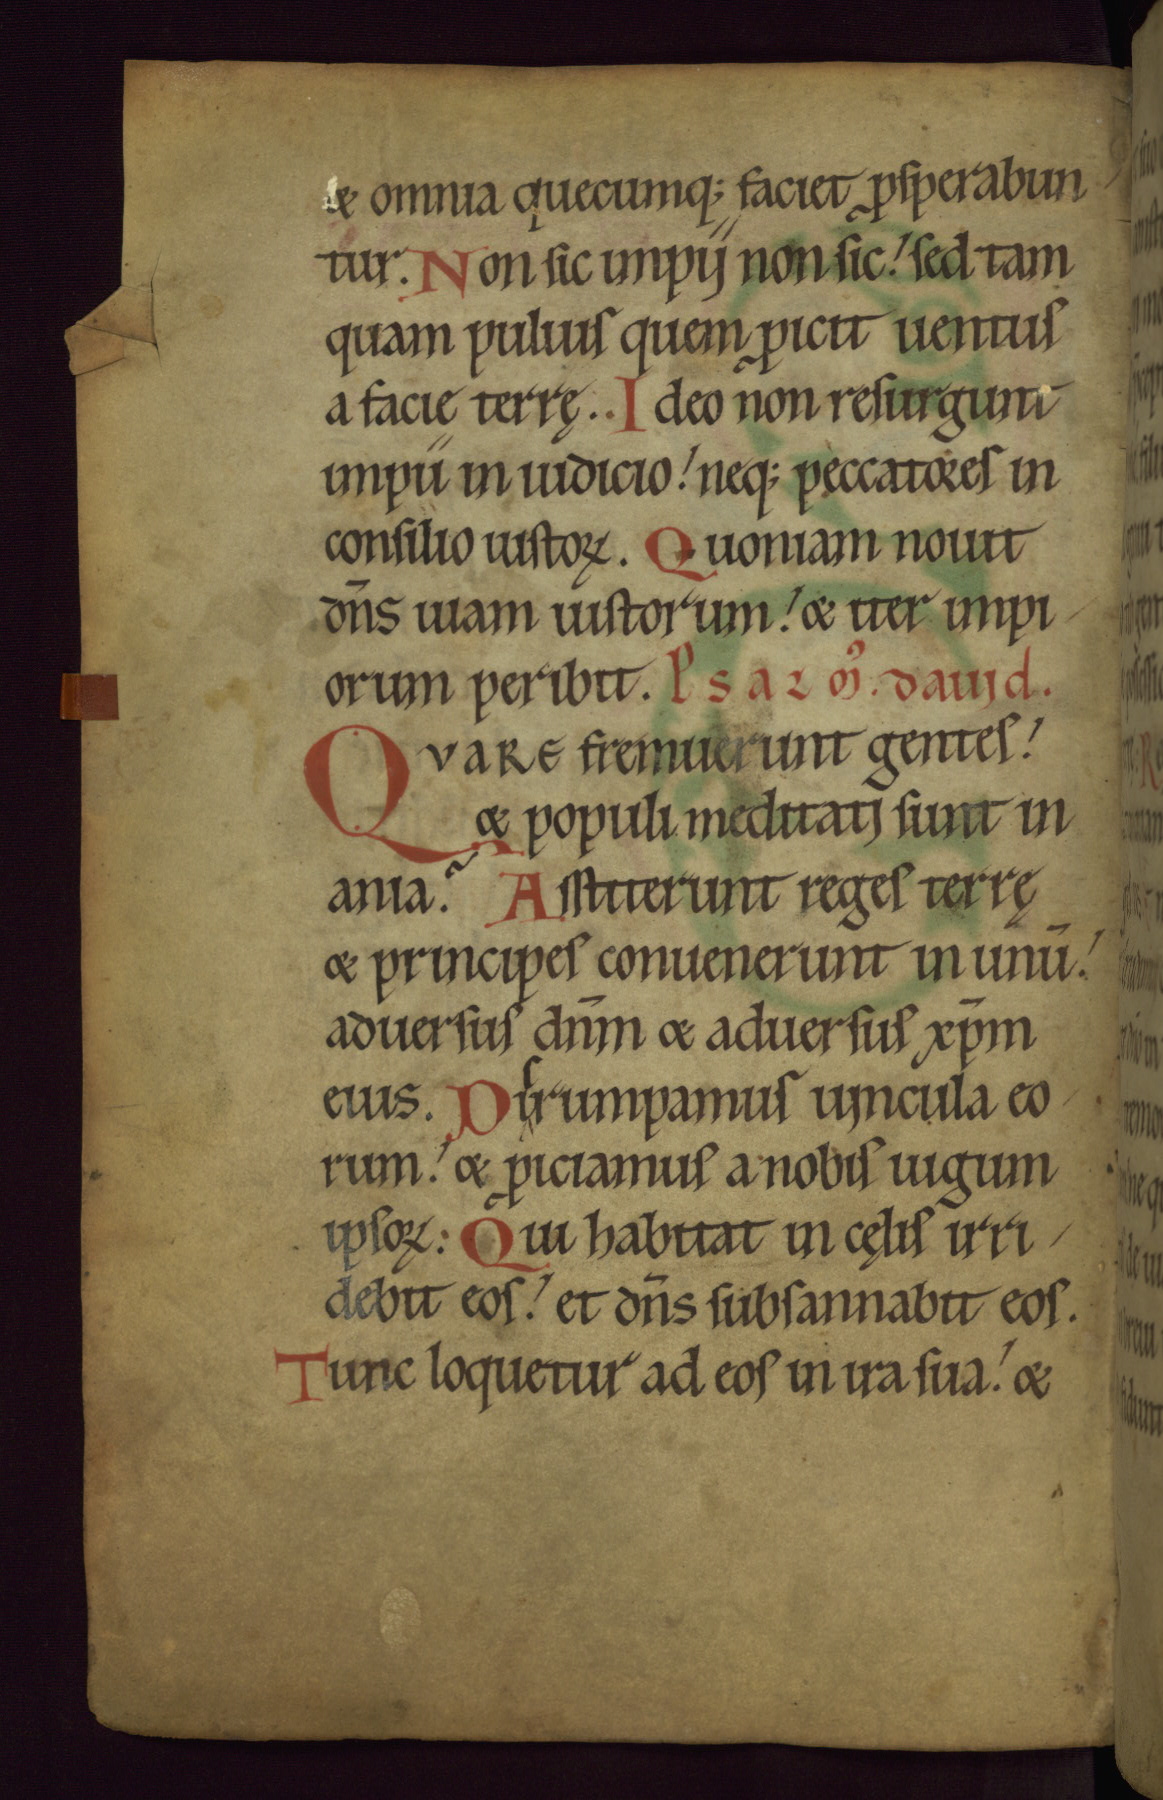 & omnia quecumq; faciet ꝓsperabun
tur. Non sic impij non sic! sed tam
quam puluis quem ꝓicit uentus
a facie terrę.. Ideo non resurgunt
impii in iudicio! neq; peccatores in
consilio iustoꝝ. Quoniam nouit
dn̄s uiam iustorum! & iter impi
orum peribit. Psa2 ꝯ. dauid.
QVARE fremuerunt gentes!
& populi meditatij sunt in
ania. Astiterunt reges terrę
& principes conuenerunt in unū!
aduersus dn̄m & aduersus xp̄m
eius. Dirrumpamus uincula eo
rum! & ꝓiciamus a nobis iugum
ipsoꝝ: Qui habitat in cęlis irri
debit eos! et dn̄s subsannabit eos.
Tunc loquetur ad eos in ira sua! &